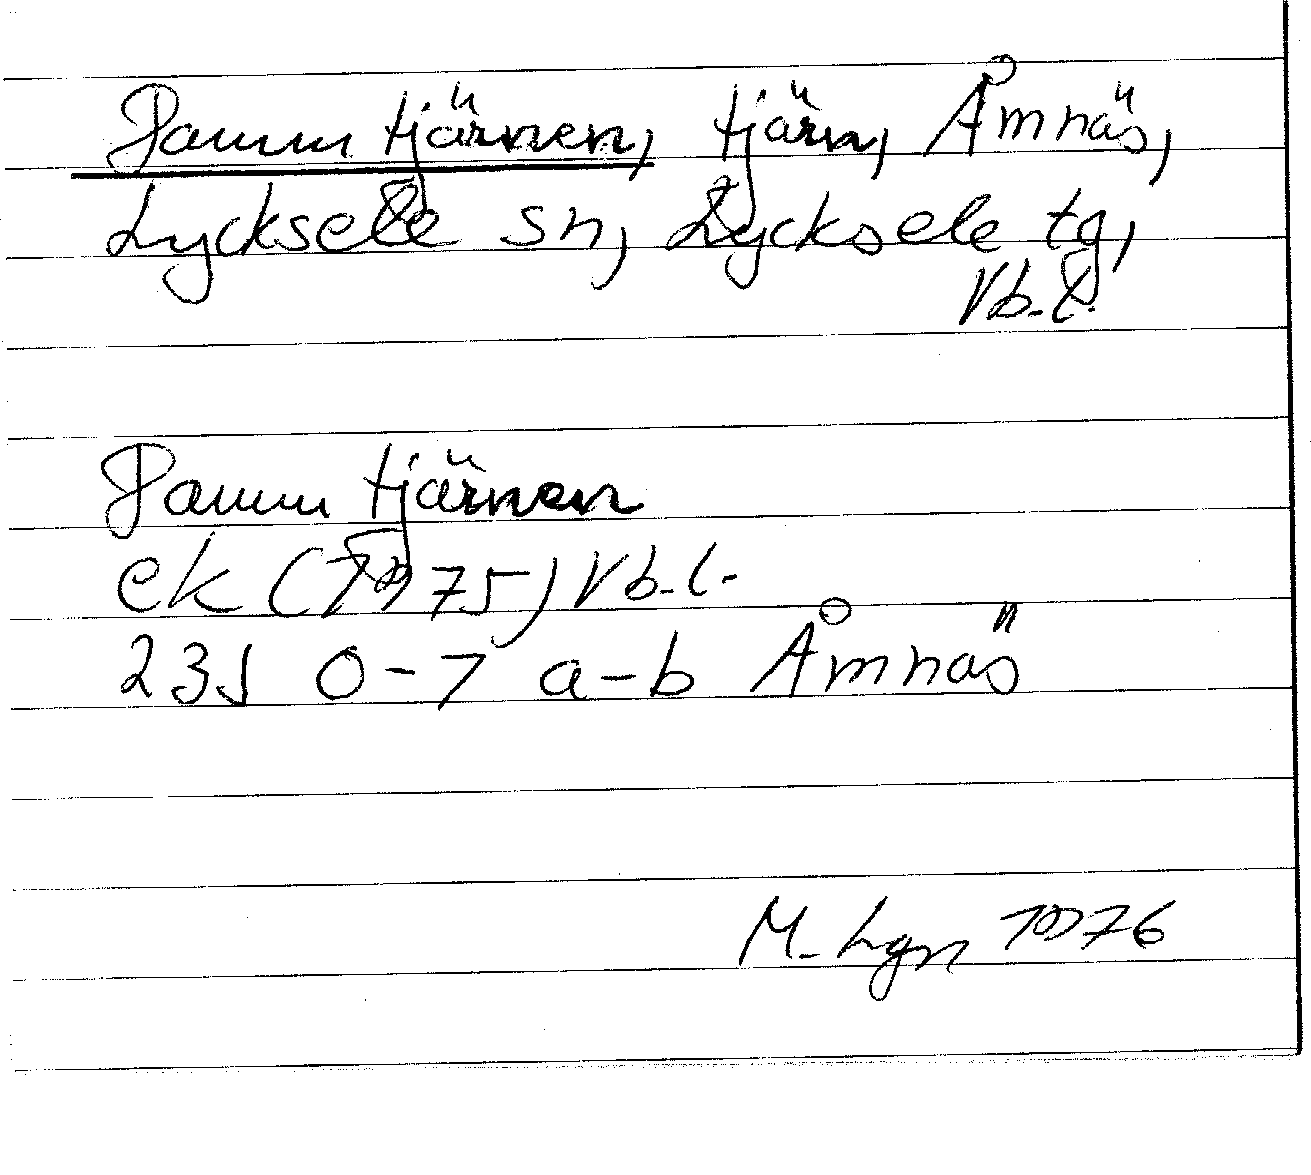 Pamm tjärnen, tjärn, Åmnäs,
Lycksele sn, Lycksele tg,
Vb.l.
Pamm tjärnen
ek (1975) Vb.l.
23J 0-1 a-b Åmnäs
M. Lgn 1976